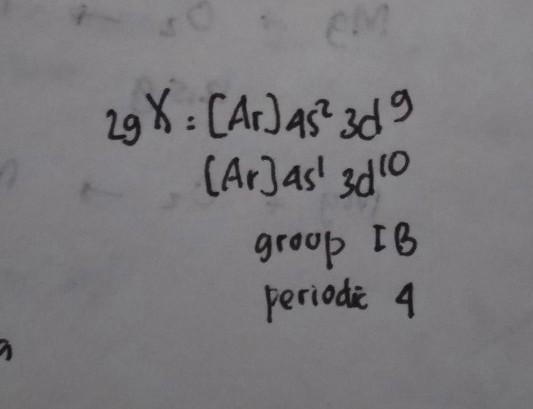 ₂₉X : [Ar] 4s² 3d⁹
[Ar] 4s¹ 3d¹⁰
group IB
periodic 4